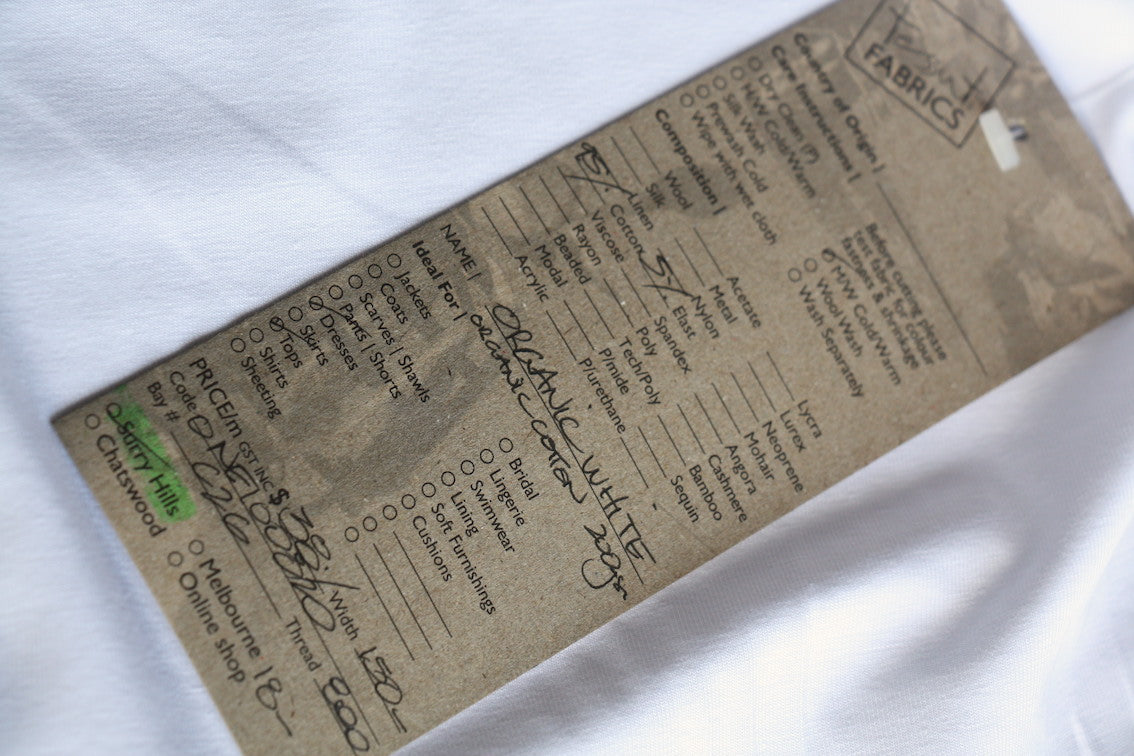 FABRICS
Country of Origin |
Care Instructions |
Dry Clean (P)
H/W Cold/Warm
Silk Wash
Prewash Cold
Wipe with wet cloth
Before cutting please
test fabric for colour
fastness & shrinkage
M/W Cold/Warm
Wool Wash
Wash Separately
Composition |
Wool
Silk
Linen
95% Cotton
Viscose
Rayon
Beaded
Modal
Acrylic
Acetate
Metal
Nylon
5% Elast
Spandex
Poly
Tech/Poly
P/mide
P/urethane
Lycra
Lurex
Neoprene
Mohair
Angora
Cashmere
Bamboo
Sequin
NAME | ORGANIC WHITE
ORGANIC COTTON 200gsm
Ideal For |
Jackets
Coats
Scarves | Shawls
Pants | Shorts
Dresses
Skirts
Tops
Shirts
Sheeting
Bridal
Lingerie
Swimwear
Lining
Soft Furnishings
Cushions
PRICE/m GST INC $ Width 150
Code Thread 800
Bay # C26
Surry Hills
Chatswood
Melbourne 18
Online shop